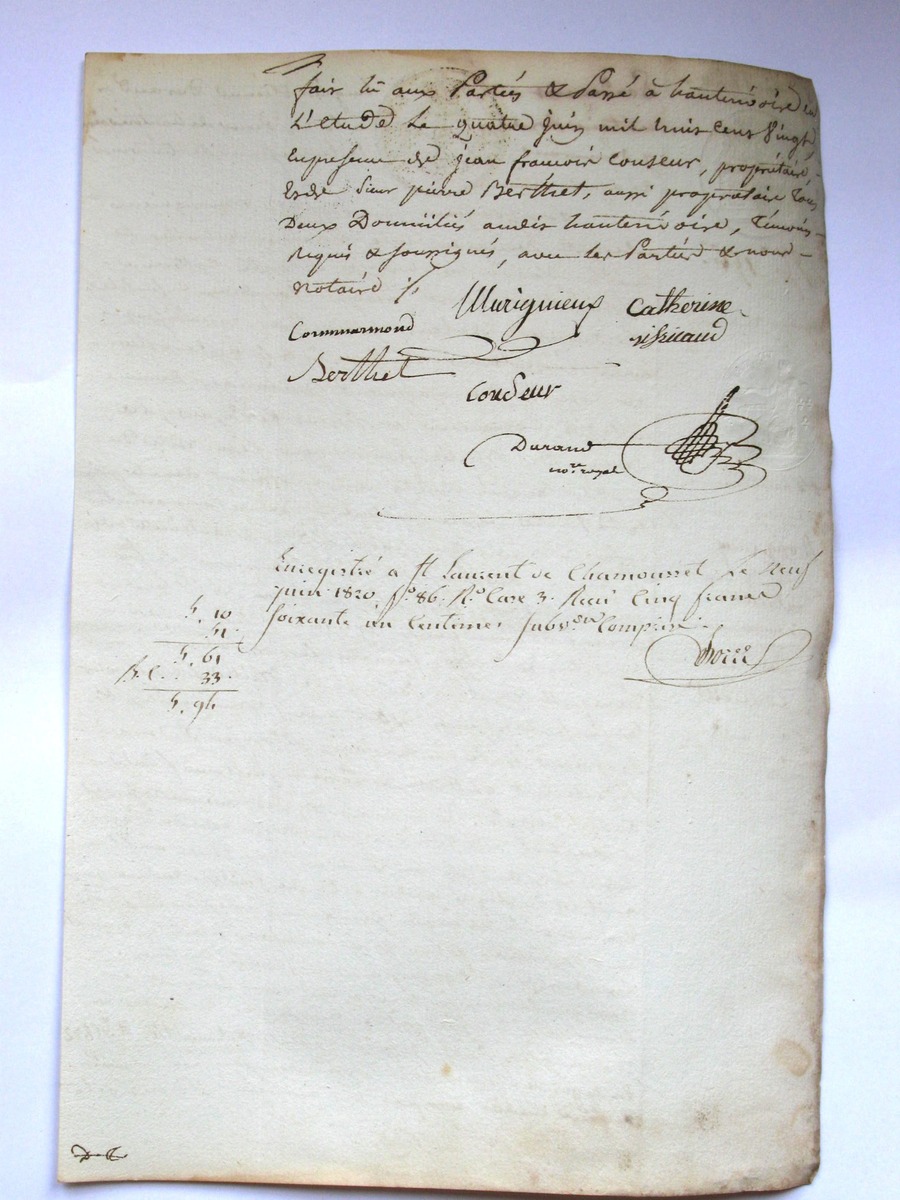 fait lû aux Parties & Passé à hauterivoire en
L'etude Le quatre juin mil huit Cent Vingt,
En presence de jean francois Couseur, propriétaire,
Et de Sieur pierre Berthet, aussi propriétaire Tous
Deux Domiciliés audit hauterivoire, Témoins
Requis & soussignés, avec les Parties & nous
notaire ./.
Murigneux Catherine
Commarmond
Berthet
Couseur
Durand
nore. royal
Enregistré a St Laurent de Chamousset Le Neuf
juin 1820 fo. 86. Ro. Case 3. Reçu Cinq francs
soixante un Centimes Subvon. Comprise
5. 10
51.
5. 61
33.
5. 94